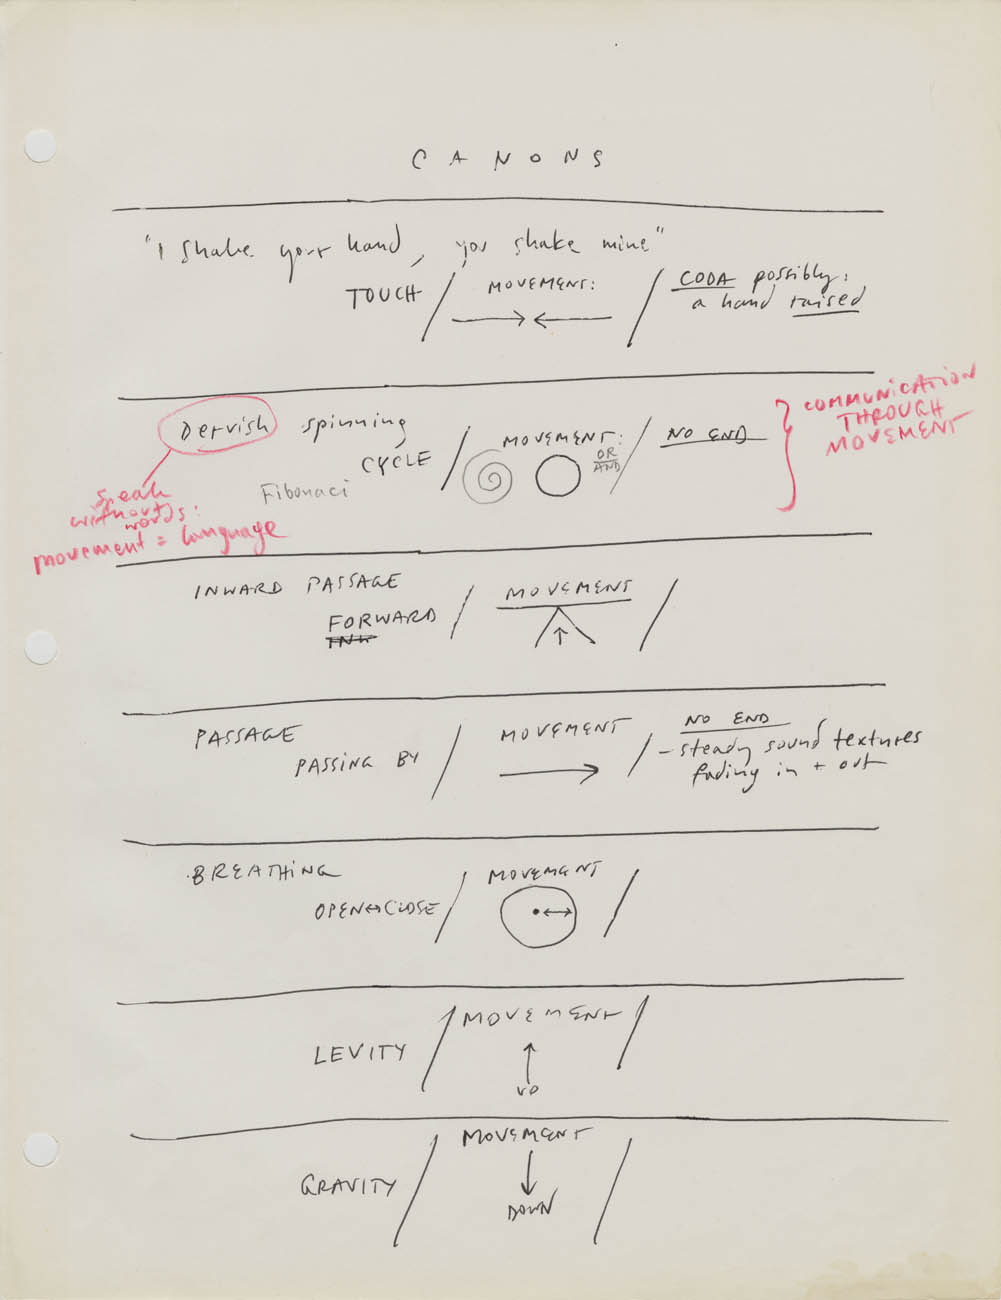 CANONS
"I shake your hand, you shake mine"
TOUCH / MOVEMENT: / CODA possibly:
a hand raised
Dervish spinning
CYCLE / MOVEMENT: OR AND / NO END
COMMUNICATION
THROUGH
MOVEMENT
Fibonaci
speak
without
words:
movement = language
INWARD PASSAGE
FORWARD / MOVEMENT /
INW
PASSAGE
PASSING BY / MOVEMENT / NO END
- steady sound textures
fading in + out
BREATHING
OPEN↔CLOSE / MOVEMENT /
LEVITY / MOVEMENT /
UP
GRAVITY / MOVEMENT /
DOWN